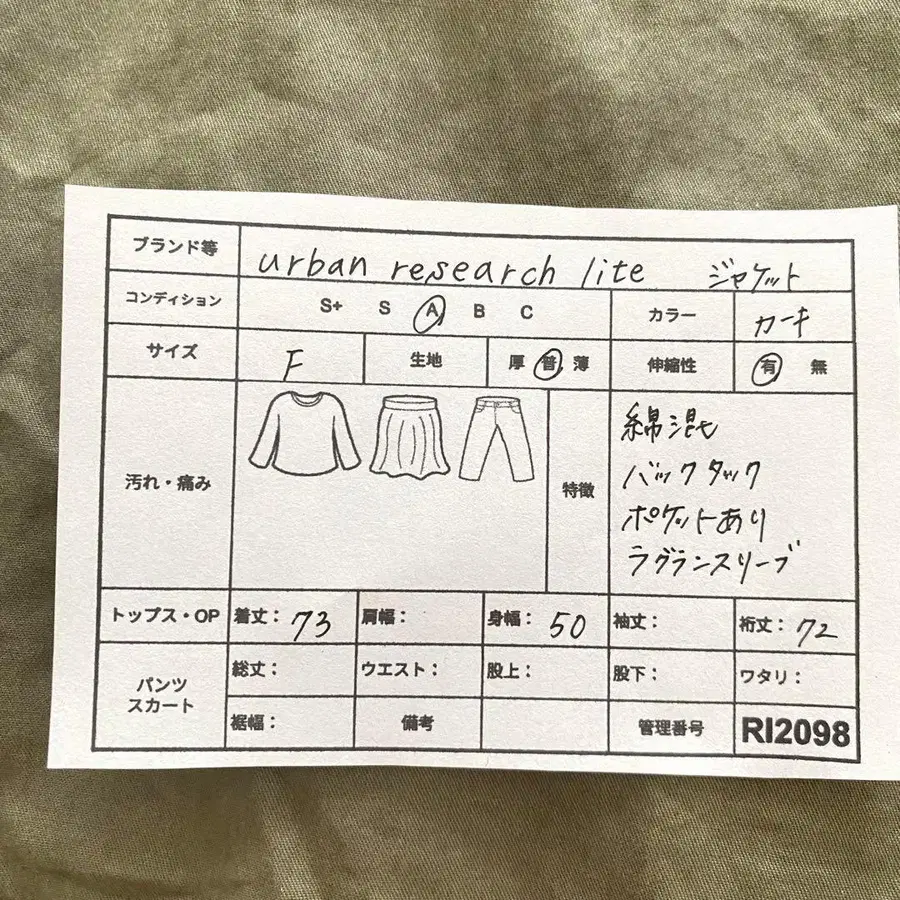 ブランド等 urban research lite ジャケット
コンディション S+ S A B C カラー カーキ
サイズ F 生地 厚 普 薄 伸縮性 有 無
汚れ・痛み 特徴
綿混
バックタック
ポケットあり
ラグランスリーブ
トップス・OP 着丈: 73 肩幅: 身幅: 50 袖丈: 裄丈: 72
パンツ
スカート
総丈: ウエスト: 股上: 股下: ワタリ:
裾幅: 備考 管理番号 RI2098